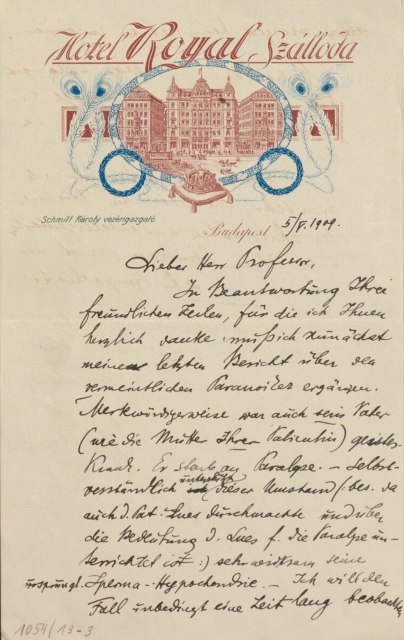 Hotel Royal Szálloda
Schmitt Károly vezérigazgató.
Budapest 5/V. 1909.
Lieber Herr Professor,
In Beantwortung Ihrer
freundlichen Zeilen, für die ich Ihnen
herzlich danke, muß ich zunächst
meinen letzten Bericht über den
vermeintlichen Paranoiker ergänzen.
Merkwürdigerweise war auch sein Vater
(wie die Mutter Ihrer Patientin) geistes-
krank. Er starb an Paralyse. – Selbst-
verständlich unterstützt dieser Umstand (: bes. da
auch d. Pat. Lues durchmachte und über
die Bedeutung d. Lues f. die Paralyse un-
terrichtet ist :) sehr wirksam seine
ursprüngl. Sperma-Hypochondrie. – Ich will den
Fall unbedingt eine Zeit lang beobachten
1054/13-3